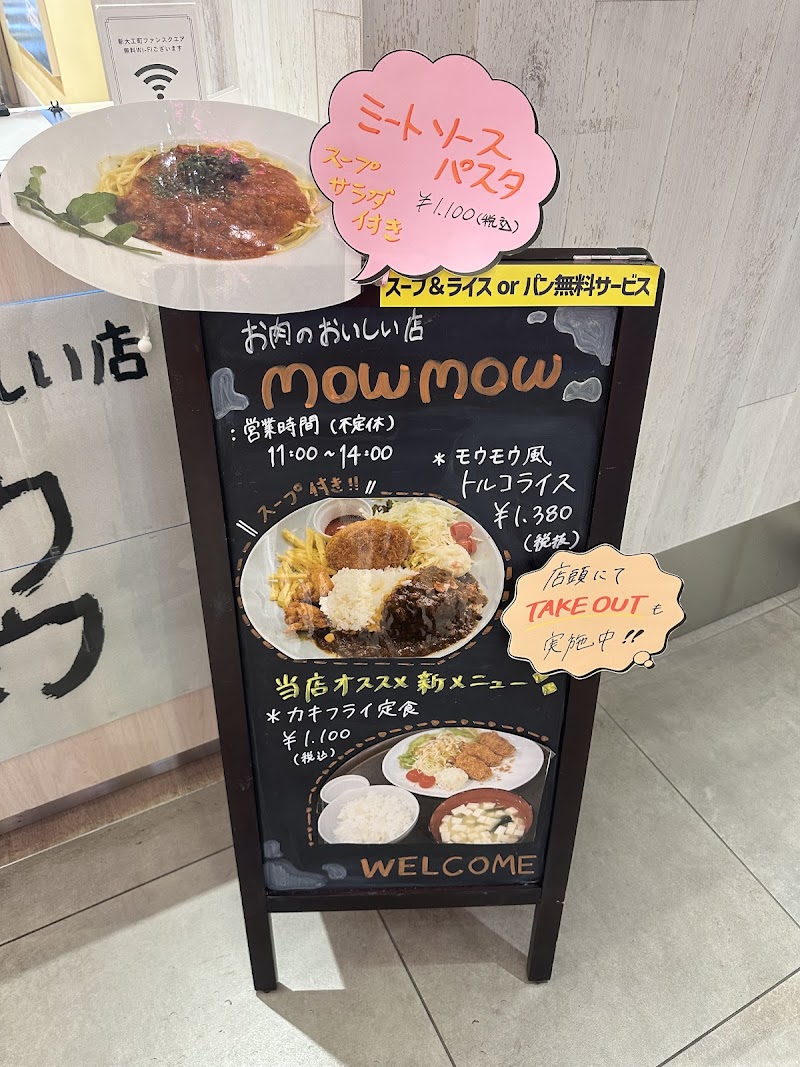 新大工町ファンスクエア
無料Wi-Fiございます
ミートソース
パスタ
スープ
サラダ
付き
¥1.100(税込)
スープ&ライス or パン無料サービス
お肉のおいしい店
mowmow
:営業時間(不定休)
11:00~14:00
*モウモウ風
トルコライス
¥1.380
(税抜)
スープ付き!!
店頭にて
TAKE OUTも
実施中!!
当店オススメ新メニュー
*カキフライ定食
¥1.100
(税込)
WELCOME
しい店
ウ
ウ